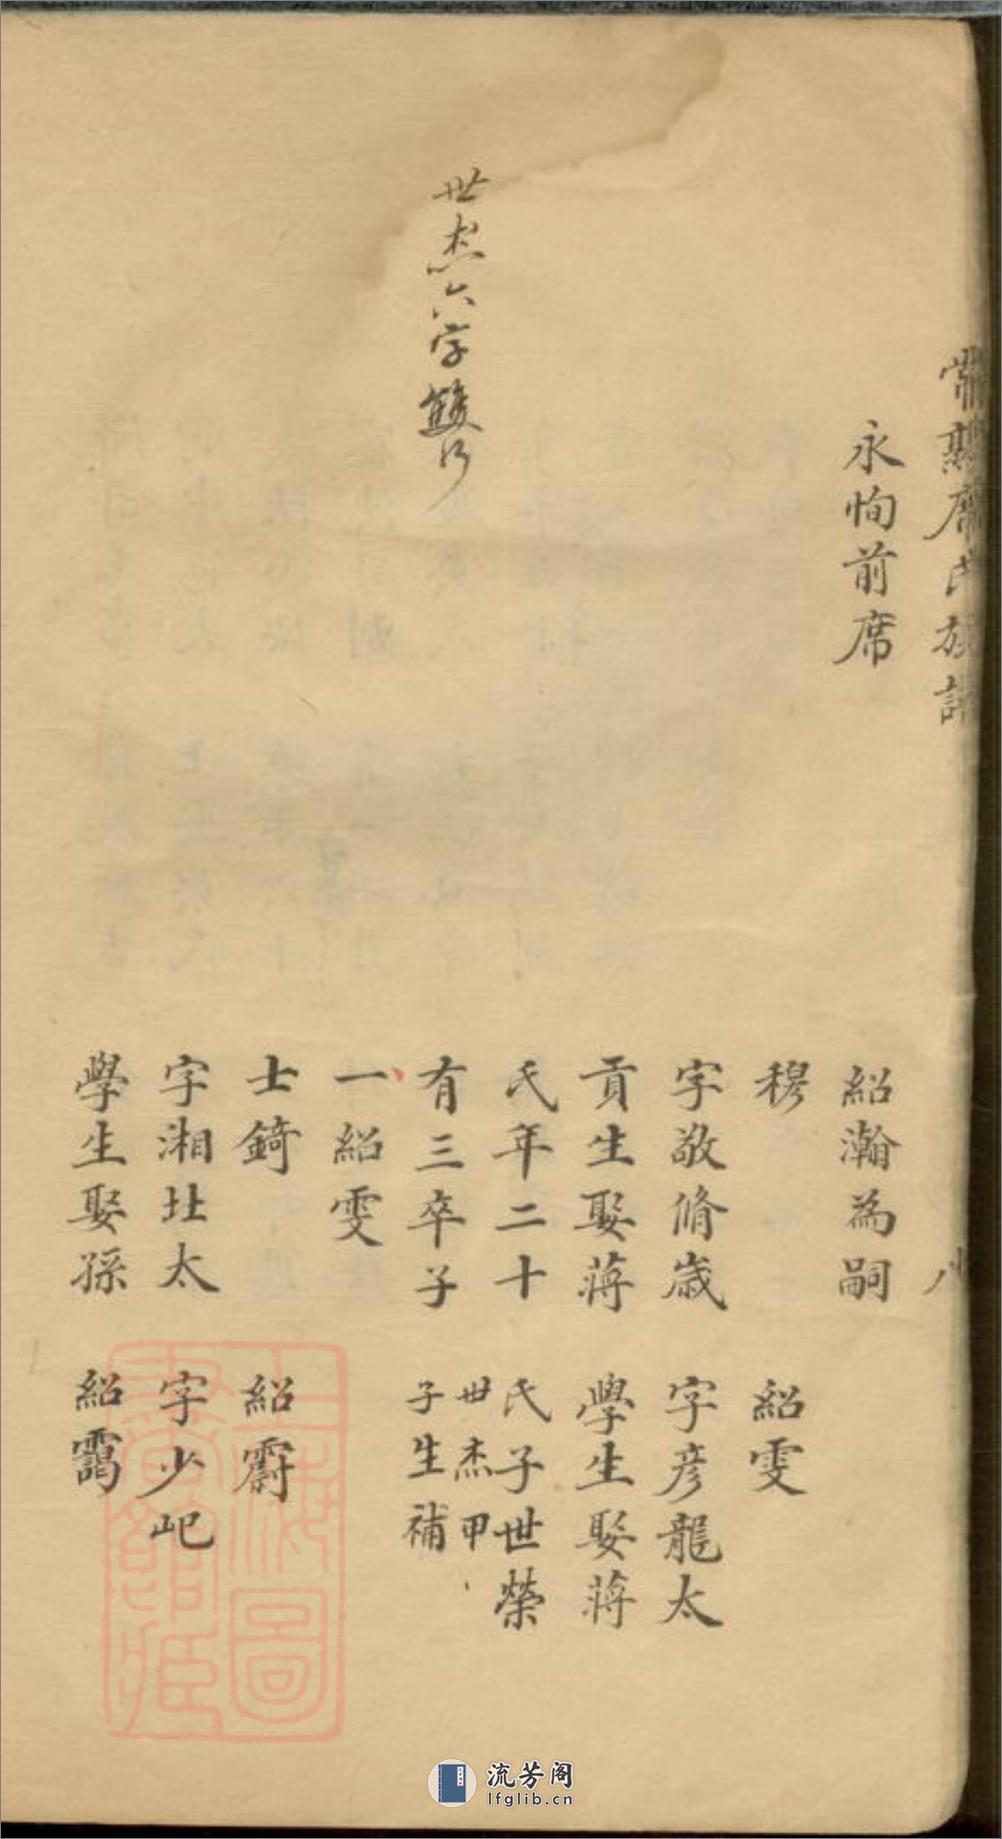 常熟席氏族譜 八
永恂前席
紹瀚為嗣
穆
紹雯
字敬脩歲
字彦龍太
貢生娶蔣
學生娶蔣
氏年二十
氏子世榮
世杰甲
子生補
有三卒子
一紹雯
世杰六字雙行
士錡
紹霨
字湘北太
字少屺
學生娶孫
紹靄
上海圖書館藏
流芳阁
lfglib.cn